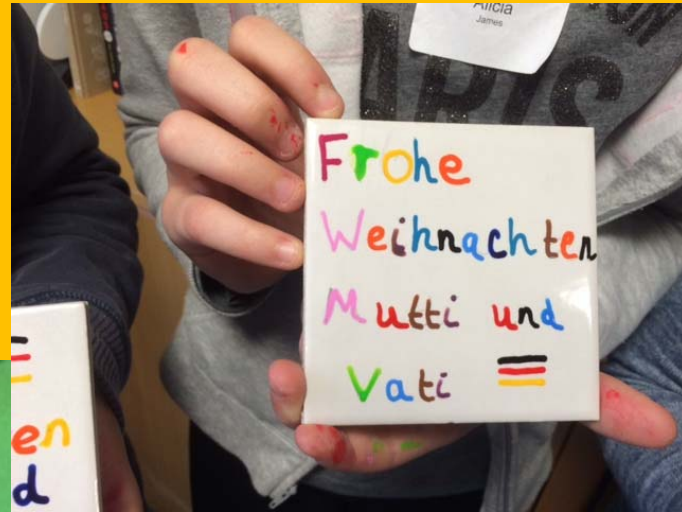 Alicia
James
Frohe
Weihnachten
Mutti und
Vati
en
d